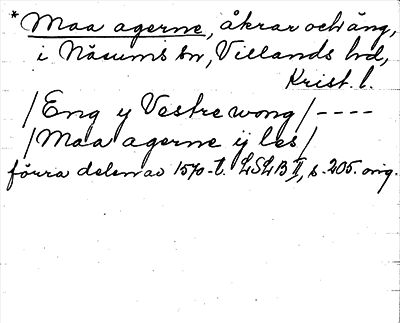 * Maa agerne, åkrar och äng,
i Näsums sn, Villands hd,
Krist. l.
/Eng y Vestre wong/----
/Maa agerne ij les/
förra delen av 1570-t. LSLB II, s. 205. orig.